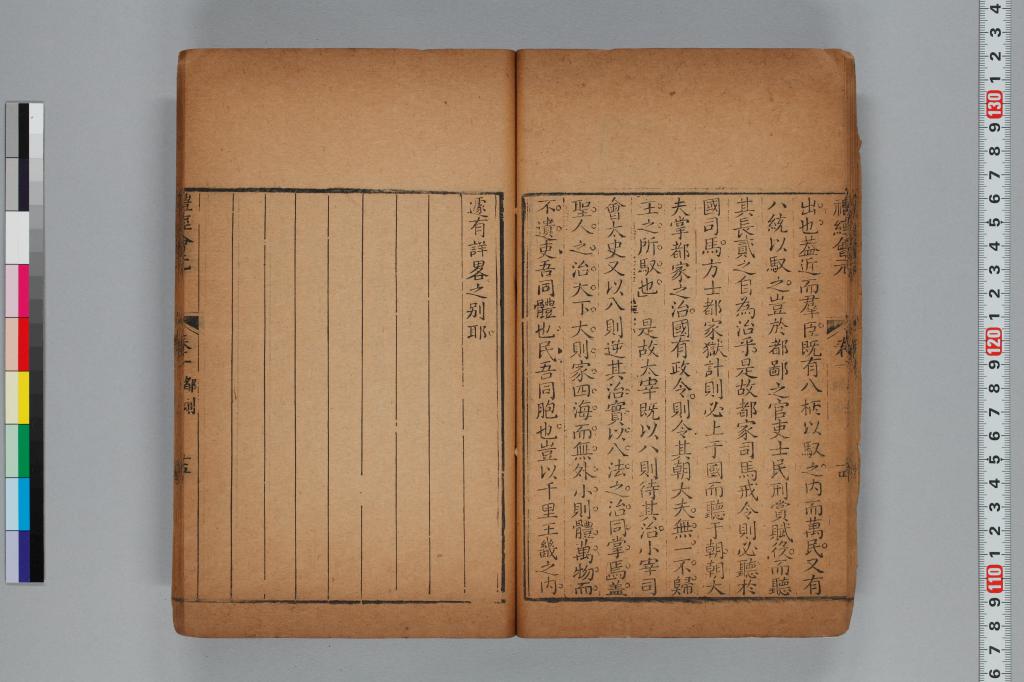 出也蓋近而羣臣既有八柄以馭之内而萬民又有
八統以馭之豈於都鄙之官吏士民刑賞賦役而聽
其長貳之自為治乎是故都家司馬戒令則必聽於
國司馬方士都家獄計則必上于國而聽于朝朝大
夫掌都家之治國有政令則令其朝大夫無一不歸
王之所馭也是故太宰既以八則待其治小宰司
會太史又以八則逆其治實以八法之治同掌焉蓋
聖人之治天下大則家四海而無外小則體萬物而
不遺吏吾同體也民吾同胞也豈以千里王畿之内
遽有詳畧之别耶
禮經會元
卷一
都則